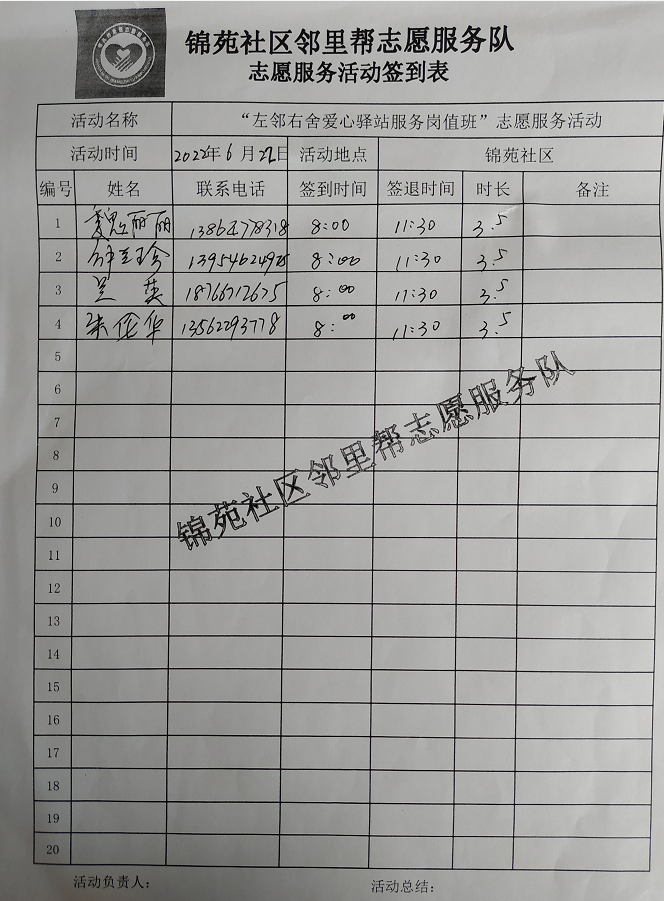 锦苑社区邻里帮志愿服务队
志愿服务活动签到表
活动名称 “左邻右舍爱心驿站服务岗值班”志愿服务活动
活动时间 2022年6月22日 活动地点 锦苑社区
编号 姓名 联系电话 签到时间 签退时间 时长 备注
1 魏丽丽 8:00 11:30 3.5
2 8:00 11:30 3.5
3 18766712675 8:00 11:30 3.5
4 13562293778 8:00 11:30 3.5
5
6
7
8
9
10
11
12
13
14
15
16
17
18
19
20
锦苑社区邻里帮志愿服务队
活动负责人： 活动总结：